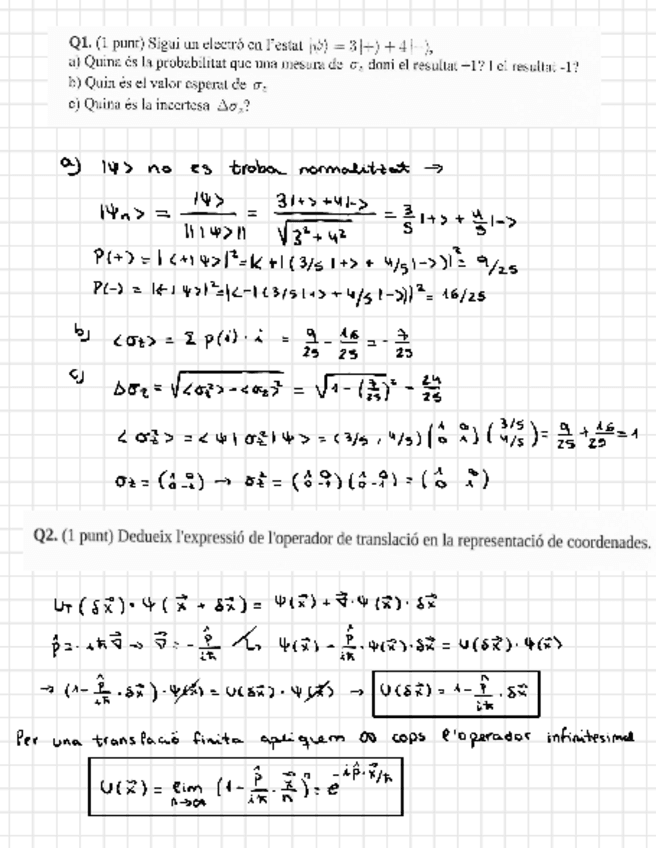 Q1. (1 punt) Sigui un electró en l'estat |ψ⟩ = 3|+⟩ + 4|−⟩,
a) Quina és la probabilitat que una mesura de σz doni el resultat +1? I el resultat -1?
b) Quin és el valor esperat de σz
c) Quina és la incertesa Δσz?
a) |ψ> no es troba normalitzat →
|ψn> = |ψ> / || |ψ> || = 3|+> + 4|-> / √(3² + 4²) = 3/5 |+> + 4/5 |->
P(+) = |<+|ψ>|² = |<+|(3/5 |+> + 4/5 |->)|² = 9/25
P(-) = |<-|ψ>|² = |<-|(3/5 |+> + 4/5 |->)|² = 16/25
b) <σz> = Σ p(i) · i = 9/25 - 16/25 = - 7/25
c) Δσz = √(<σz²> - <σz>²) = √(1 - (7/25)²) = 24/25
<σz²> = <ψ|σz²|ψ> = (3/5, 4/5) (1 0 0 1) (3/5 4/5) = 9/25 + 16/25 = 1
σz = (1 0 0 -1) → σz² = (1 0 0 -1) (1 0 0 -1) = (1 0 0 1)
Q2. (1 punt) Dedueix l'expressió de l'operador de translació en la representació de coordenades.
UT(δx⃗) · ψ(x⃗ + δx⃗) = ψ(x⃗) + ∇⃗ · ψ(x⃗) · δx⃗
p̂ = - iħ∇⃗ → ∇⃗ = - p̂/iħ ↳ ψ(x⃗) - p̂/iħ · ψ(x⃗) · δx⃗ = U(δx⃗) · ψ(x⃗)
→ (1 - p̂/iħ · δx⃗) · ψ(x⃗) = U(δx⃗) · ψ(x⃗) → U(δx⃗) = 1 - p̂/iħ · δx⃗
Per una translació finita apliquem ∞ cops l'operador infinitesimal
U(x⃗) = lim n→∞ (1 - p̂/iħ · x⃗/n)ⁿ = e^(-ip̂·x⃗/ħ)